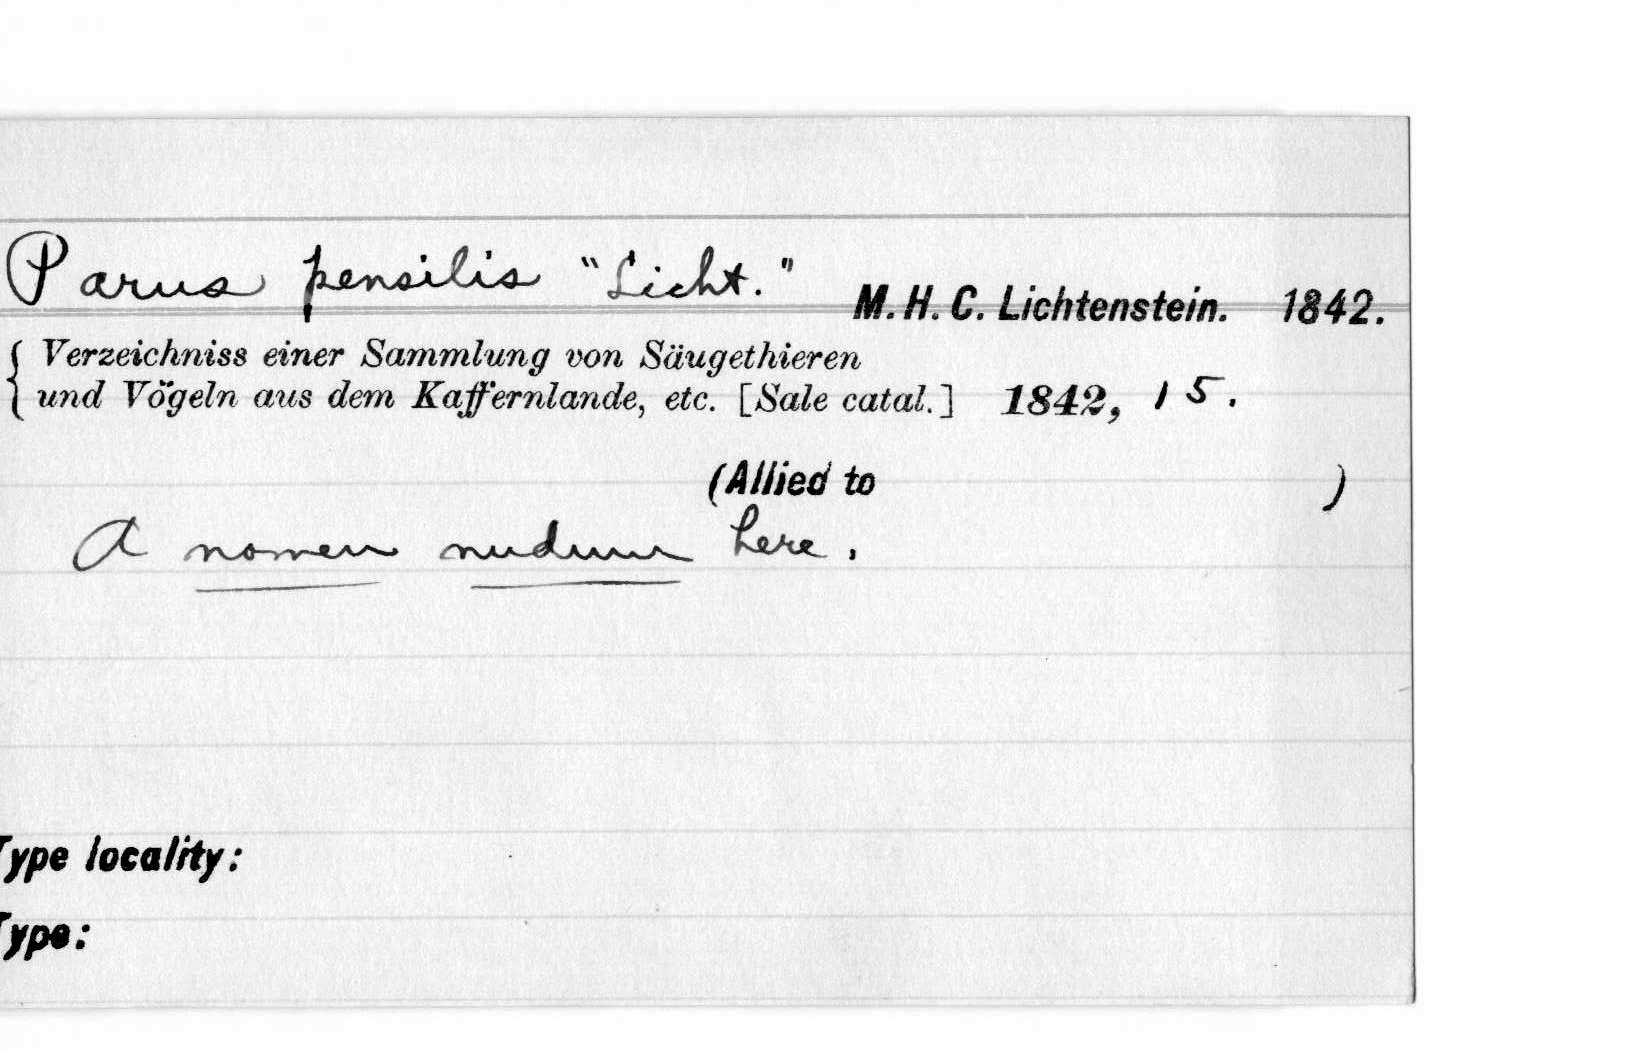 Parus pensilis "Licht." M. H. C. Lichtenstein. 1842.
{ Verzeichniss einer Sammlung von Säugethieren
und Vögeln aus dem Kaffernlande, etc. [Sale catal.] 1842, 15.
(Allied to )
A nomen nudum here.
Type locality:
Type: